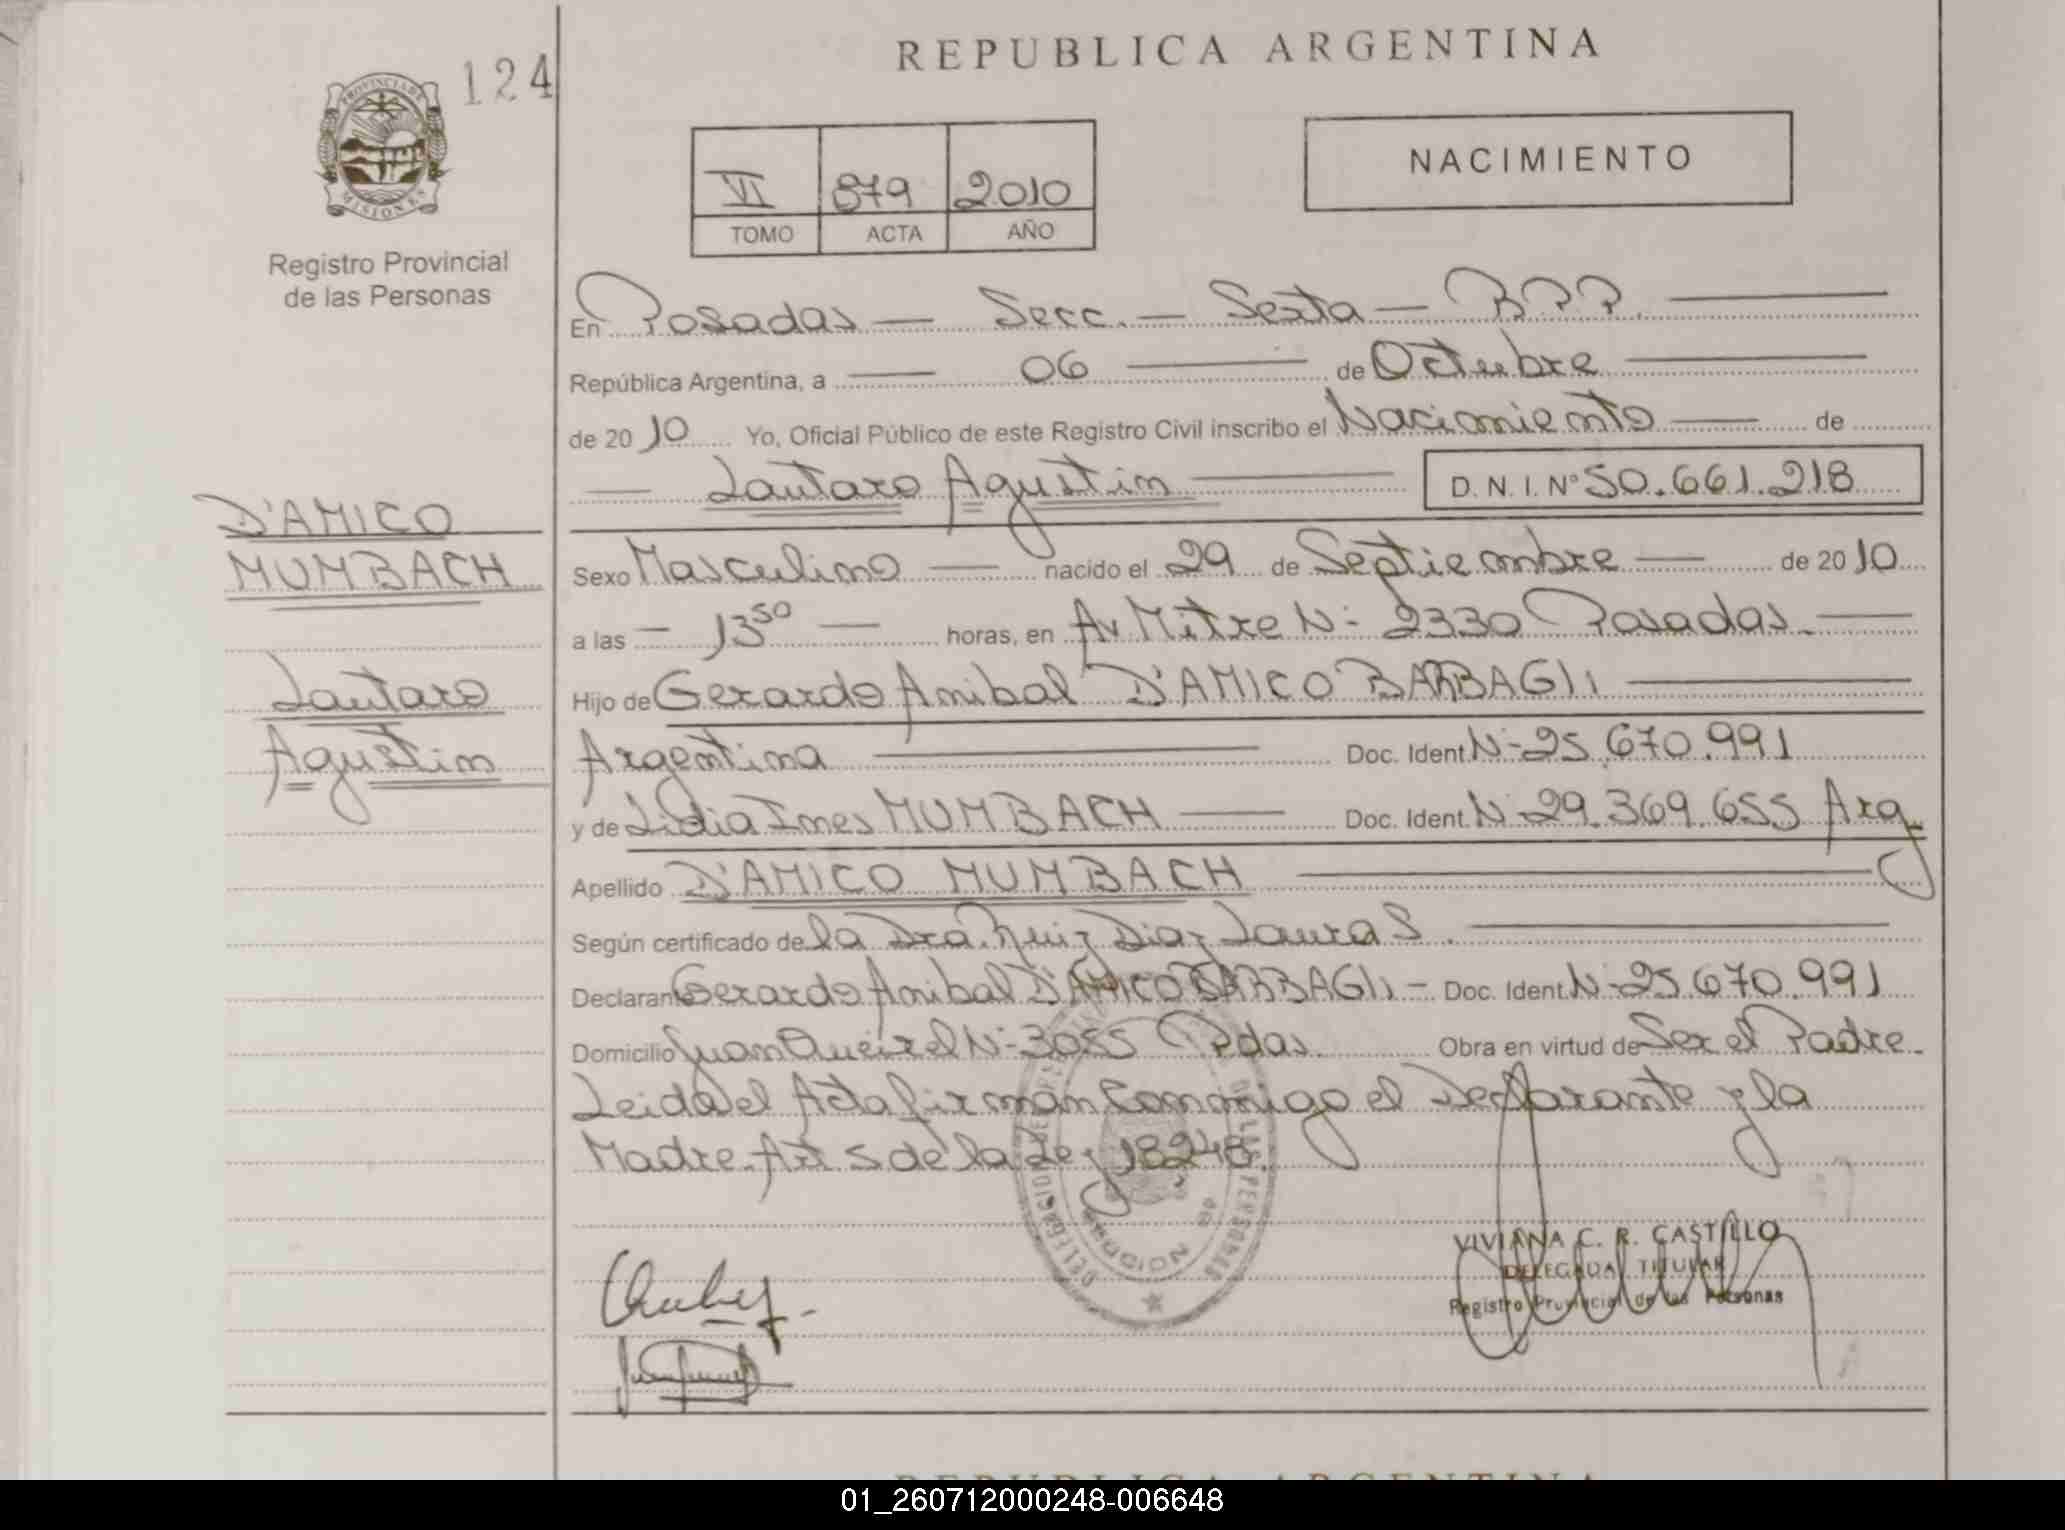 REPUBLICA ARGENTINA
124
PROVINCIA DE
MISIONES
Registro Provincial
de las Personas
NACIMIENTO
VI 879 2010
TOMO ACTA AÑO
En Posadas — Secc. — Sexta — B.P.P.
República Argentina, a — 06 — de Octubre
de 2010 Yo, Oficial Público de este Registro Civil inscribo el Nacimiento — de
— Lautaro Agustin — D.N.I. Nº 50.661.218
D'AMICO
MUMBACH
Lautaro
Agustin
Sexo Masculino — nacido el 29 de Septiembre — de 2010
a las — 13 50 — horas, en Av Mitre N- 2330 Posadas. —
Hijo de Gerardo Anibal D'AMICO BARBAGLI —
Argentina — Doc. Ident. N- 25.670.991
y de Lidia Ines MUMBACH — Doc. Ident. N- 29.369.655 Arg
Apellido D'AMICO MUMBACH —
Según certificado de la Dra. Ruiz Diaz Laura S. —
Declarante Gerardo Anibal D'AMICO BARBAGLI — Doc. Ident. N- 25.670.991
Domicilio Juan Queirel N- 3055 Pdas. Obra en virtud de Ser el Padre.
Leida el Acta firman Conmigo el Declarante y la
Madre. Art 5 de la Ley 18248.
VIVIANA C. R. CASTILLO
DELEGADA TITULAR
Registro Provincial de las Personas
REPUBLICA ARGENTINA
01_260712000248-006648